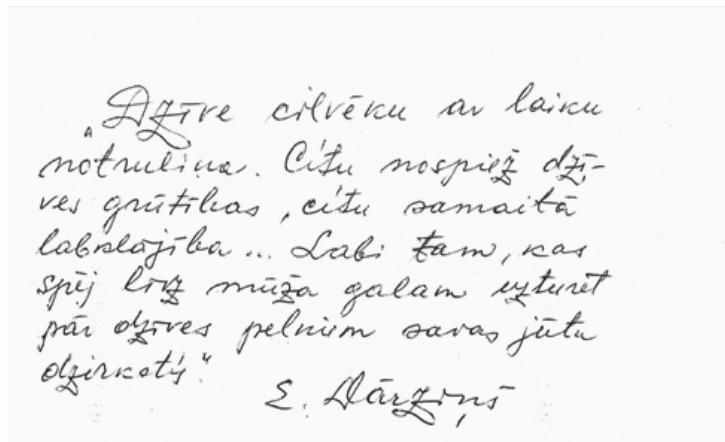 „Dzīve cilvēku ar laiku
notrulina. Citu nospiež dzī-
ves grūtības, citu samaitā
labklājība... Labi tam, kas
spēj līdz mūža galam uzturēt
pār dzīves pelniem savas jūtu
dzirkstis."
E. Dārziņš